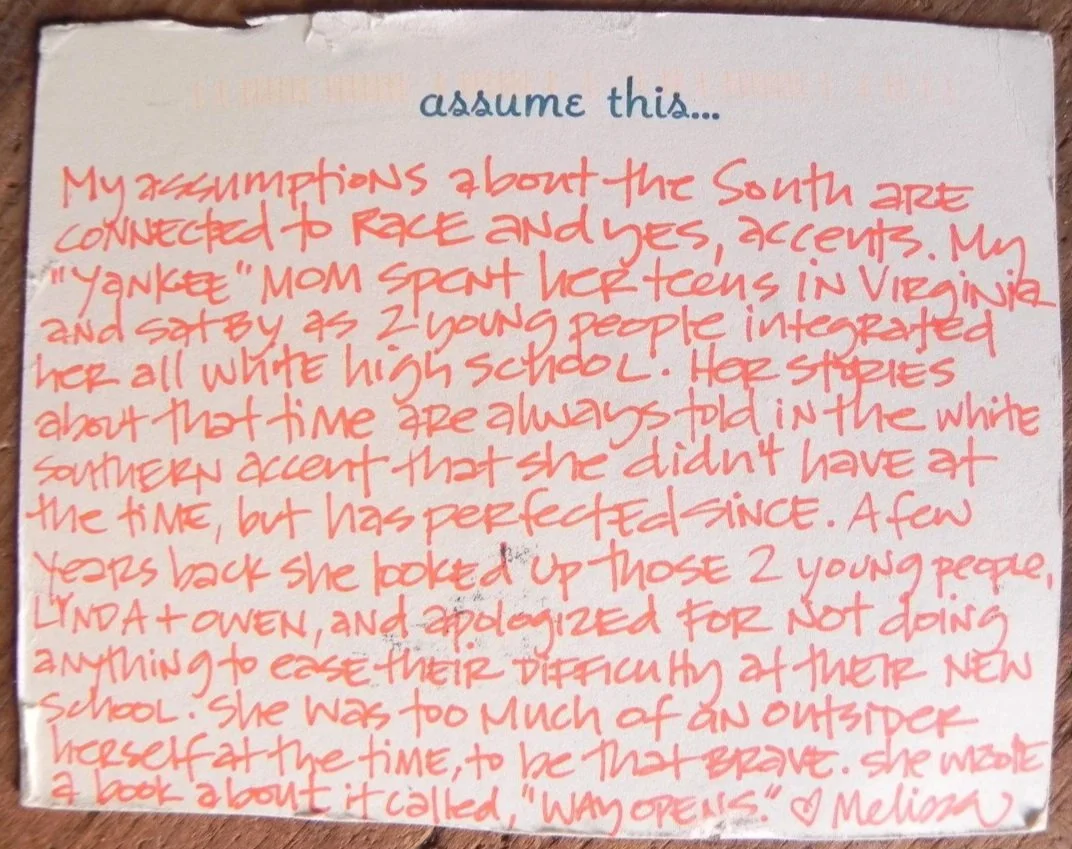 assume this...
My assumptions about the South are
connected to Race and yes, accents. My
"Yankee" Mom spent her teens in Virginia
and sat by as 2 young people integrated
her all white high school. Her stories
about that time are always told in the white
southern accent that she didn't have at
the time, but has perfected since. A few
years back she looked up those 2 young people,
Lynda + Owen, and apologized for not doing
anything to ease their difficulty at their new
school. She was too much of an outsider
herself at the time, to be that brave. She wrote
a book about it called, "Way Opens." ♡ Melissa